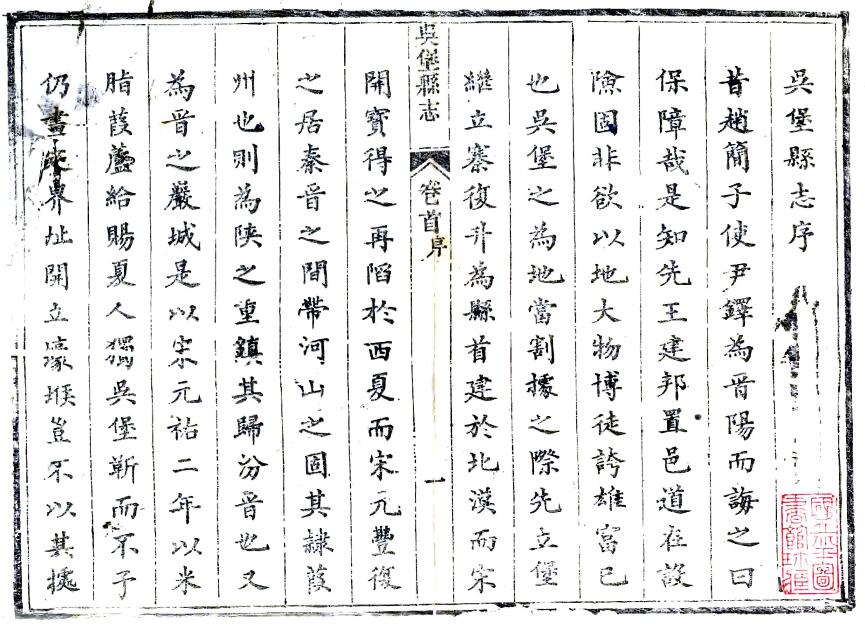 吳堡縣志序
昔趙簡子使尹鐸為晉陽而誨之曰
保障哉是知先王建邦置邑道在設
險固非欲以地大物博徒誇雄富已
也吳堡之為地當割據之際先立堡
繼立寨復升為縣首建於北漢而宋
吳堡縣志 卷首序 一
開寶得之再陷於西夏而宋元豐復
之居秦晉之間帶河山之固其隸葭
州也則為陝之重鎮其歸汾晉也又
為晉之嚴城是以宋元祐二年以米
脂葭蘆給賜夏人獨吳堡靳而不予
仍畫界址開立壕堠豈不以其扼